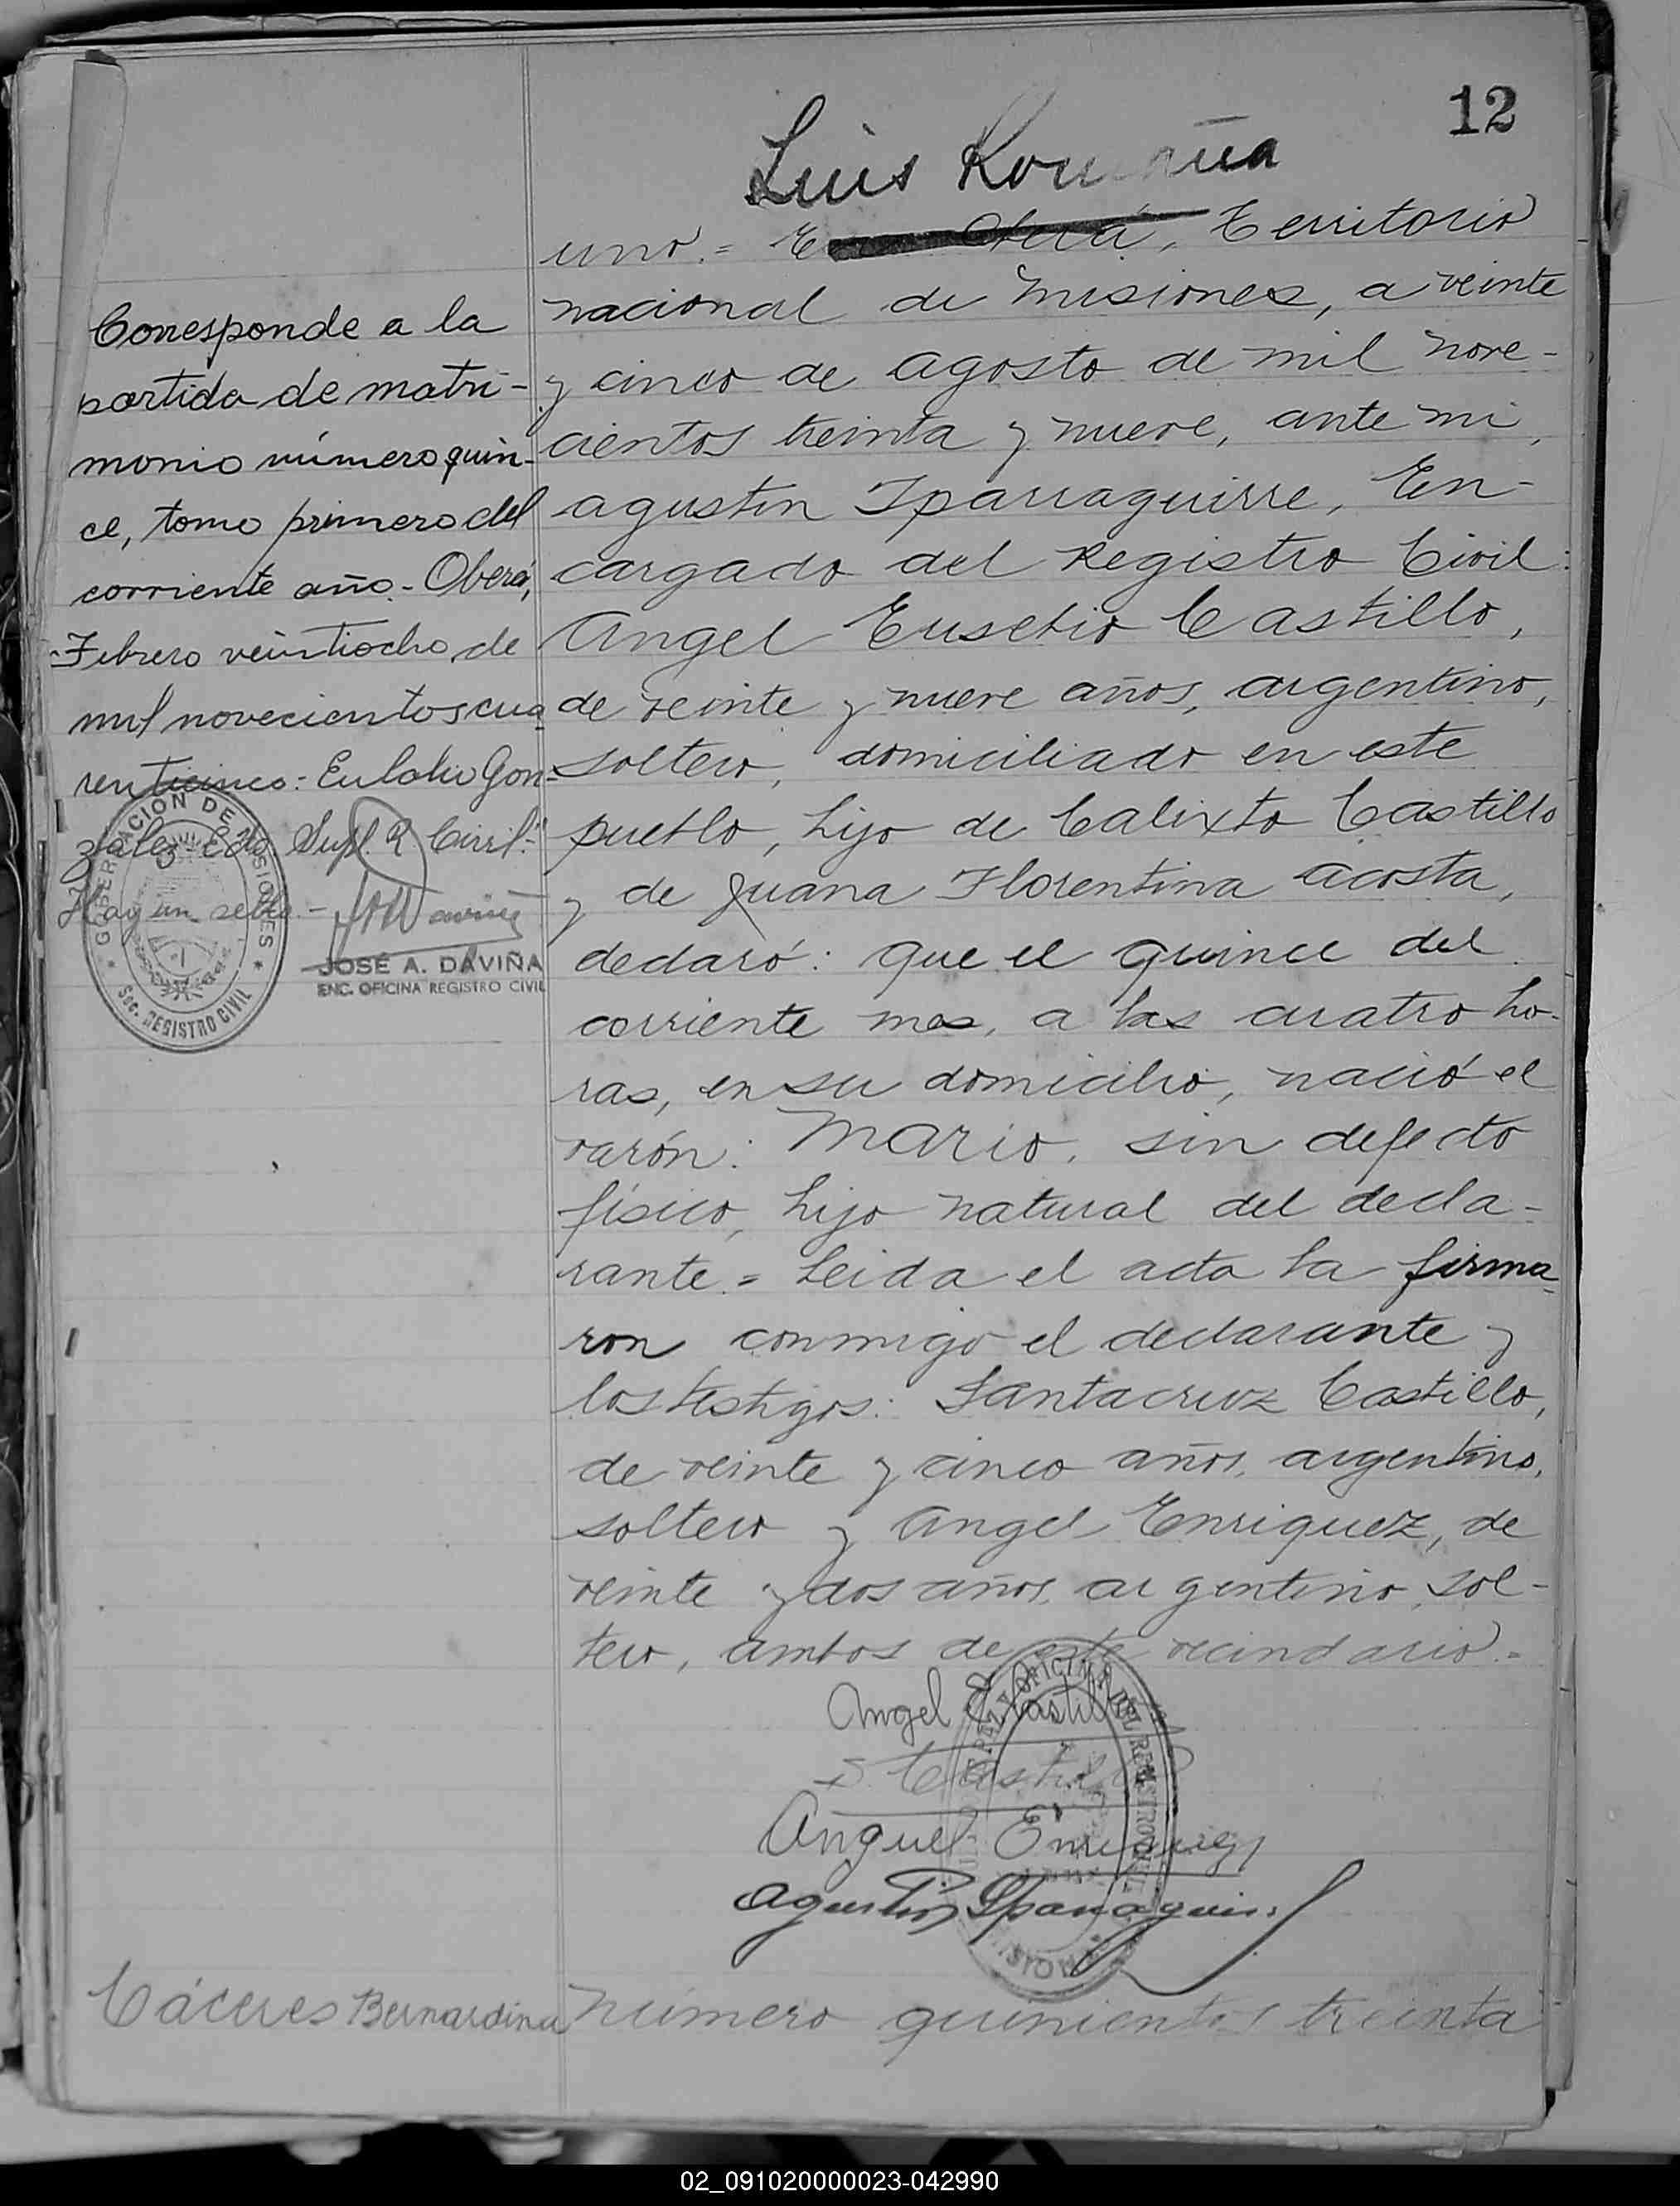 12
Luis
uno.= En Oberá, Territorio
nacional de Misiones, a veinte
y cinco de agosto de mil nove-
cientos treinta y nueve, ante mi,
agustin Iparraguirre, En-
cargado del Registro Civil:
Angel Eusebio Castillo,
de veinte y nueve años, argentino,
soltero, domiciliado en este
pueblo, hijo de Calixto Castillo
y de Juana Florentina Acosta,
declaró: que el quince del
corriente mes, a las cuatro ho-
ras, en su domicilio, nació el
varón: Mario, sin defecto
físico, hijo natural del decla-
rante.= Leida el acta la firma-
ron conmigo el declarante y
los testigos: Santacruz Castillo,
de veinte y cinco años, argentino,
soltero y Angel Enriquez, de
veinte y dos años, argentino, sol-
tero, ambos de este vecindario.=
Angel E Castillo
S. Castillo
Anguel Enriquez
Agustin Iparraguirre
Corresponde a la
partida de matri-
monio número quin-
ce, tomo primero del
corriente año.- Oberá,
Febrero veintiocho de
mil novecientos cua-
renticinco: Eulalio Gon-
zalez Edo Supl. R Civil."
Hay un sello.-
GOBERNACION DE MISIONES
Sec. REGISTRO CIVIL
JOSÉ A. DAVIÑA
ENC. OFICINA REGISTRO CIVIL
OFICINA DEL REGISTRO CIVIL
MISIONES
Cáceres Bernardina
Número quinientos treinta
02_091020000023-042990